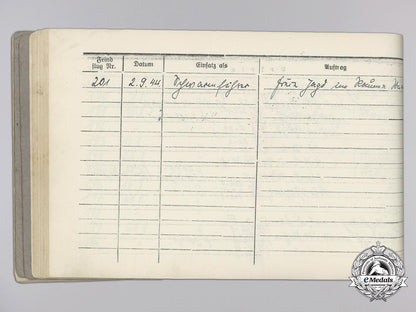 Feind
flug Nr. Datum Einsatz als Auftrag
201 2.9.44 Schwarmführer freie Jagd im Raume
eMedals